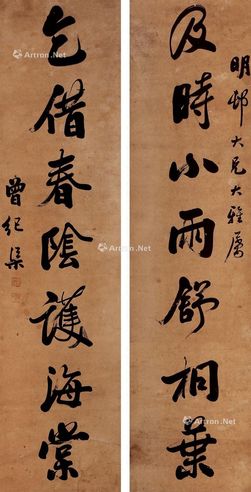 明邨大兄大雅属
及時小雨舒桐葉
乞借春陰護海棠
曾纪渠
Artron.Net
Artron.Net
Artron.Net
Artron.Net